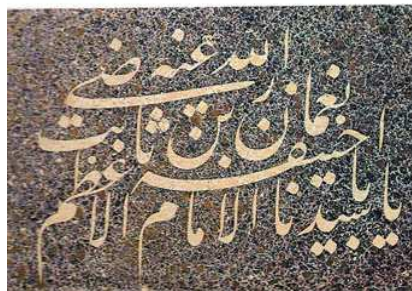 يا سيدنا الامام الاعظم
ابا حنيفه
نعمان بن ثابت
رضي الله عنه